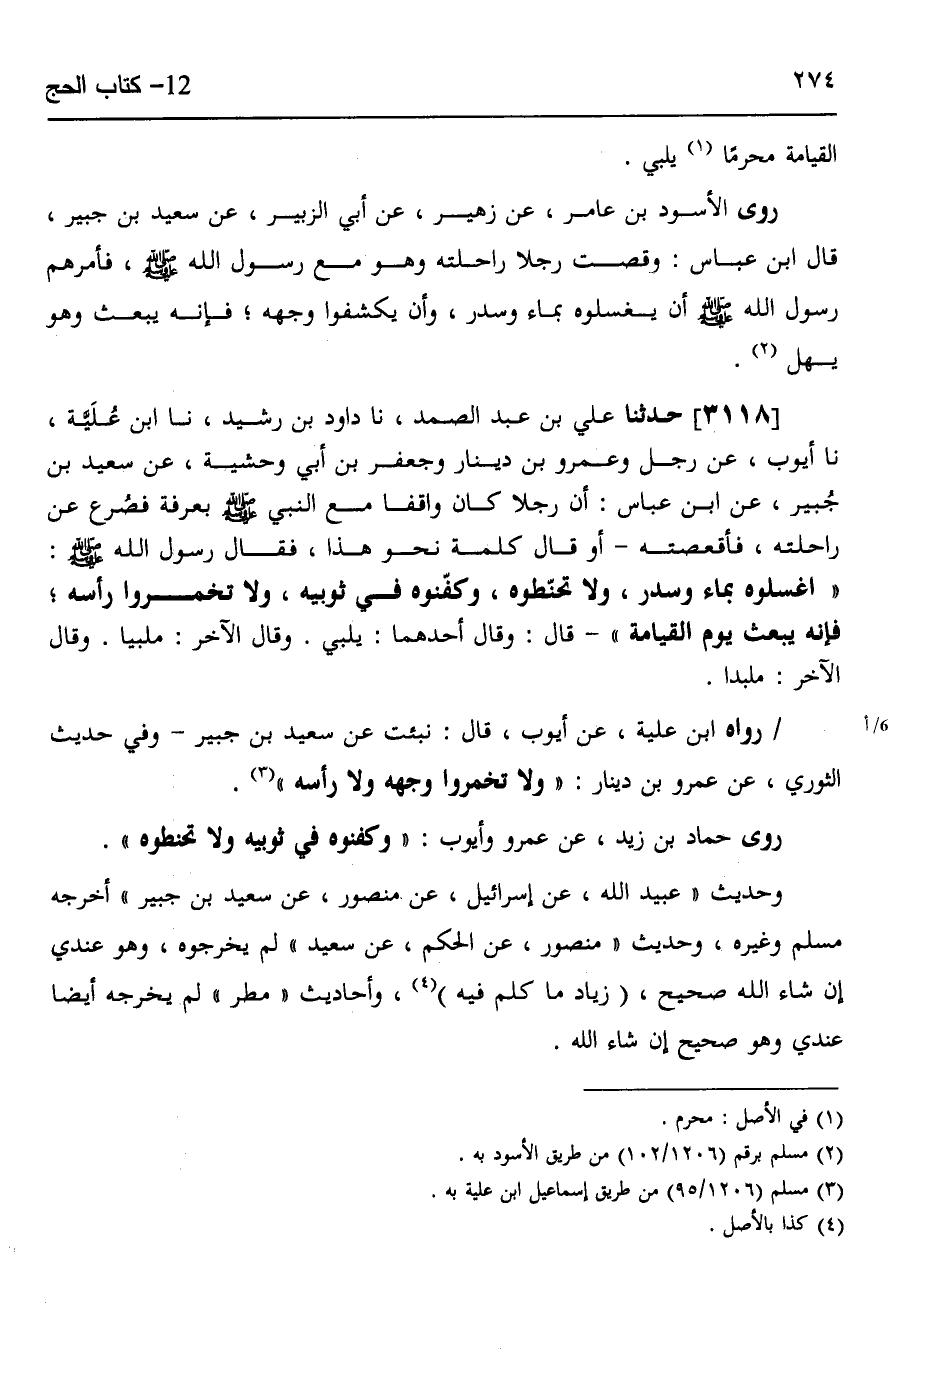 ٢٧٤ 12- كتاب الحج
القيامة محرمًا (١) يلبي .
روى الأسود بن عامر ، عن زهير ، عن أبي الزبير ، عن سعيد بن جبير ،
قال ابن عباس : وقصت رجلا راحلته وهو مع رسول الله ﷺ ، فأمرهم
رسول الله ﷺ أن يغسلوه بماء وسدر ، وأن يكشفوا وجهه ؛ فإنه يبعث وهو
يهل (٢) .
[٣١١٨] حدثنا علي بن عبد الصمد ، نا داود بن رشيد ، نا ابن عُلَيَّة ،
نا أيوب ، عن رجل وعمرو بن دينار وجعفر بن أبي وحشية ، عن سعيد بن
جُبير ، عن ابن عباس : أن رجلا كان واقفا مع النبي ﷺ بعرفة فصُرع عن
راحلته ، فأقعصته – أو قال كلمة نحو هذا ، فقال رسول الله ﷺ :
« اغسلوه بماء وسدر ، ولا تحنّطوه ، وكفّنوه في ثوبيه ، ولا تخمروا رأسه ؛
فإنه يبعث يوم القيامة » – قال : وقال أحدهما : يلبي . وقال الآخر : ملبيا . وقال
الآخر : ملبدا .
6/أ / رواه ابن علية ، عن أيوب ، قال : نبئت عن سعيد بن جبير – وفي حديث
الثوري ، عن عمرو بن دينار : « ولا تخمروا وجهه ولا رأسه »(٣) .
روى حماد بن زيد ، عن عمرو وأيوب : « وكفنوه في ثوبيه ولا تحنطوه » .
وحديث « عبيد الله ، عن إسرائيل ، عن منصور ، عن سعيد بن جبير » أخرجه
مسلم وغيره ، وحديث « منصور ، عن الحكم ، عن سعيد » لم يخرجوه ، وهو عندي
إن شاء الله صحيح ، ( زياد ما كلم فيه )(٤) ، وأحاديث « مطر » لم يخرجه أيضا
عندي وهو صحيح إن شاء الله .
(١) في الأصل : محرم .
(٢) مسلم برقم (١٠٢/١٢٠٦) من طريق الأسود به .
(٣) مسلم (٩٥/١٢٠٦) من طريق إسماعيل ابن علية به .
(٤) كذا بالأصل .